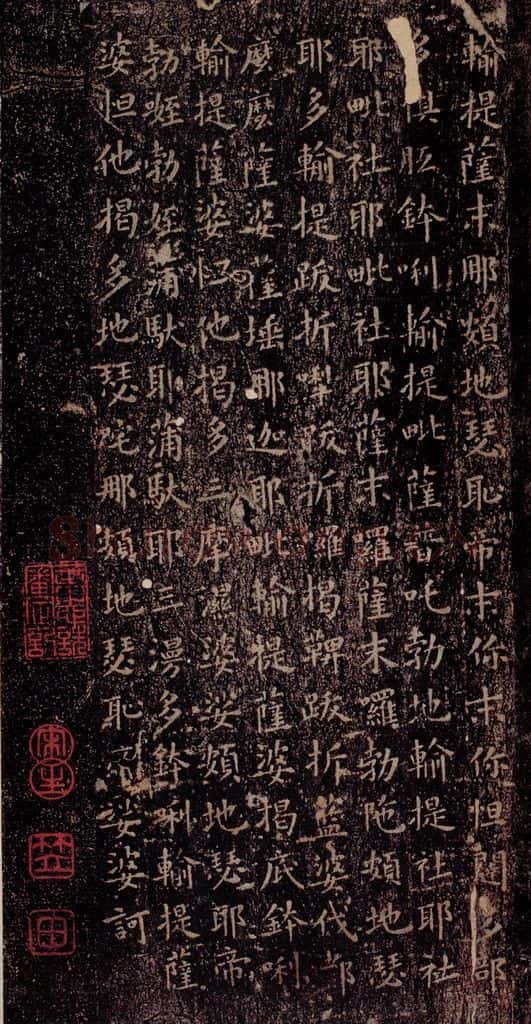 輸提薩末那頞地瑟恥帝末你末你怛闥多部
多俱胝鉢唎輸提毗薩普吒勃地輸提社耶社
耶毗社耶毗社耶薩末囉薩末羅勃陁頞地瑟
耶多輸提跋折犁跋折羅揭鞞跋折藍婆伐都
麼麼薩婆薩埵那迦耶毗輸提薩婆揭底鉢唎
輸提薩婆怛他揭多三摩濕婆娑頞地瑟耶帝
勃姪勃姪蒲馱耶蒲馱耶三漫多鉢唎輸提薩
婆怛他揭多地瑟咤那頞地瑟恥帝娑婆訶